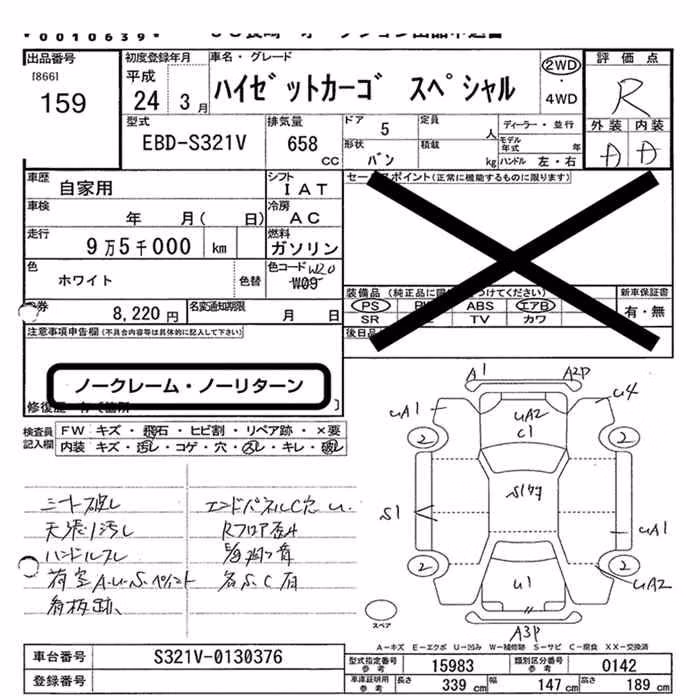 *0010639*
出品番号
[866]
159
初度登録年月
平成
24 3月
車名・グレード
ハイゼットカーゴ スペシャル
2WD
・
4WD
評価点
R
外装 内装
A A
型式
EBD-S321V
排気量
658
cc
ドア 5
定員 人
ディーラー・並行
形状 バン
積載 kg
モデル年式 年
ハンドル 左・右
車歴 自家用
シフト
IAT
車検 年 月( 日)
冷房
AC
走行 9万5千000 km
燃料
ガソリン
色 ホワイト
色替
色コード W20
W09
8,220円
名変通知期限 月 日
セールスポイント(正常に機能するものに限ります)
装備品
PS
ABS エアB
SR TV カワ
新車保証書
有・無
注意事項申告欄(不具合内容等は具体的に記入して下さい)
ノークレーム・ノーリターン
検査員記入欄
FW キズ・飛石・ヒビ割・リペア跡・×要
内装 キズ・汚レ・コゲ・穴・スレ・キレ・破レ
シート破レ
天張リ汚レ
ハンドルスレ
荷室A.U.S.ペイント
看板跡
エンドパネルC穴 u.
Rフロア歪み
各S.C有
A1 A2P
UA1 UA2 C1 U4
2 2
S1 S1
UA1
2 2
U1 UA2
A3P
スペア
A―キズ E―エクボ U―凹み W―補修跡 S―サビ C―腐食 XX―交換済
車台番号 S321V-0130376
登録番号
型式指定番号 参考 15983
類別区分番号 参考 0142
車庫証明用 参考 長さ 339cm 幅 147cm 高さ 189cm